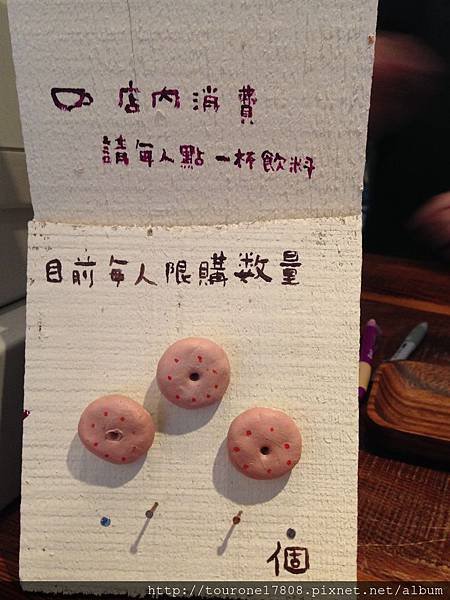 店內消費
請每人點一杯飲料
目前每人限購数量
個
http://tourone17808.pixnet.net/album